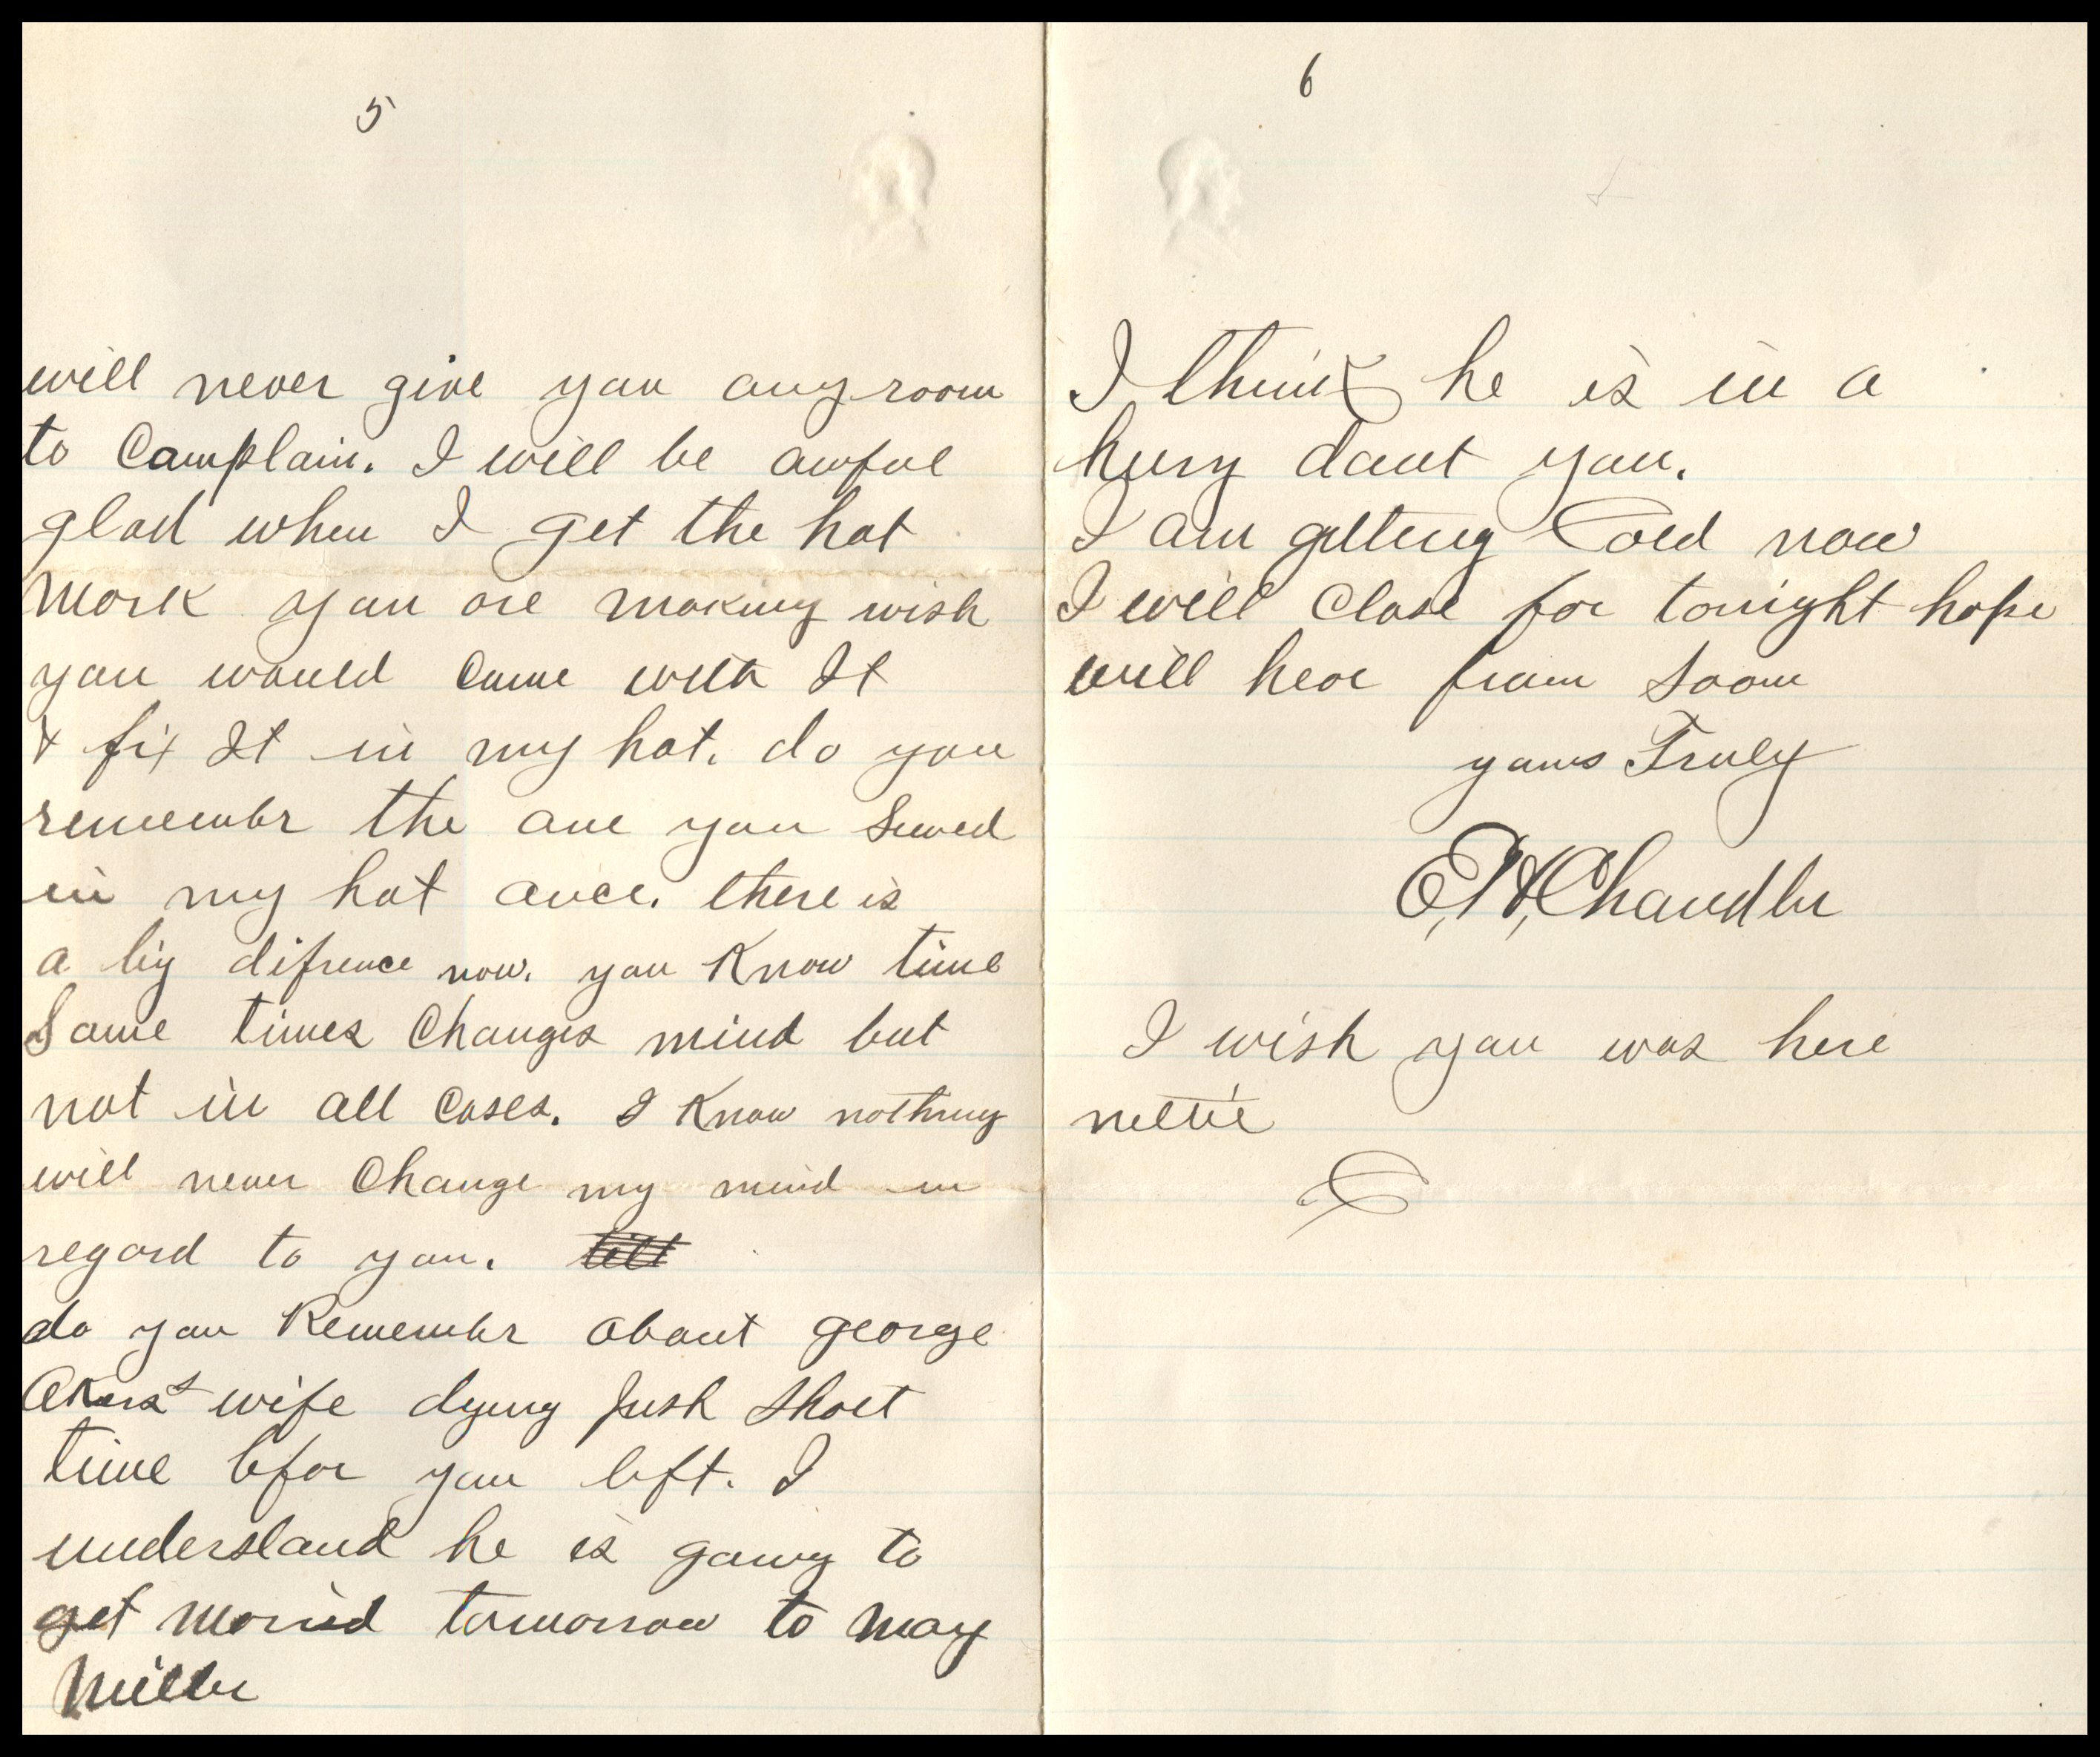 5
will never give you any room
to Complain. I will be awful
glad when I get the hat
Mark you are making wish
you would Come with It
& fix It in my hat. do you
remembr the one you Sewed
in my hat once. there is
a big difrence now. you Know time
Some times Changes mind but
not in all Cases. I Know nothing
will never Change my mind in
regard to you. till
do you Remembr about george
Akers wife dying Just Short
time befor you left. I
understand he is going to
get Maried tomorrow to May
Miller
6
I think he is in a
hury dont you.
I am getting Cold now
I will Close for tonight hope
will hear from Soon
yours Truly
E. H. Chandler
I wish you was here
nettie